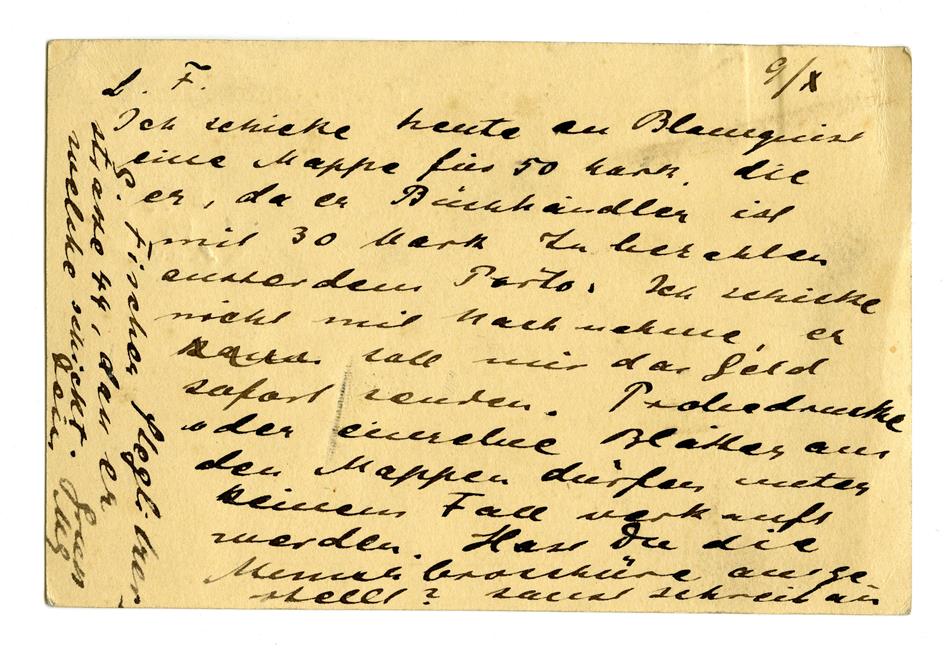 9/X
L. F.
Ich schicke heute an Blomquist
eine Mappe für 50 Mark, die
er, da er Buchhändler ist
mit 30 Mark zu bezahlen
ausserdem Porto. Ich schicke
nicht mit Nachnahme, er
soll mir das Geld
sofort senden. Probedrucke
oder einzelne Blätter aus
den Mappen dürfen unter
keinem Fall verkauft
werden. Hast Du die
Munchbroschüre ausge
stellt? sonst schreib an
S. Fischer Steglitzer
strasse 48, dass er
welche schickt. Gruss
Dein